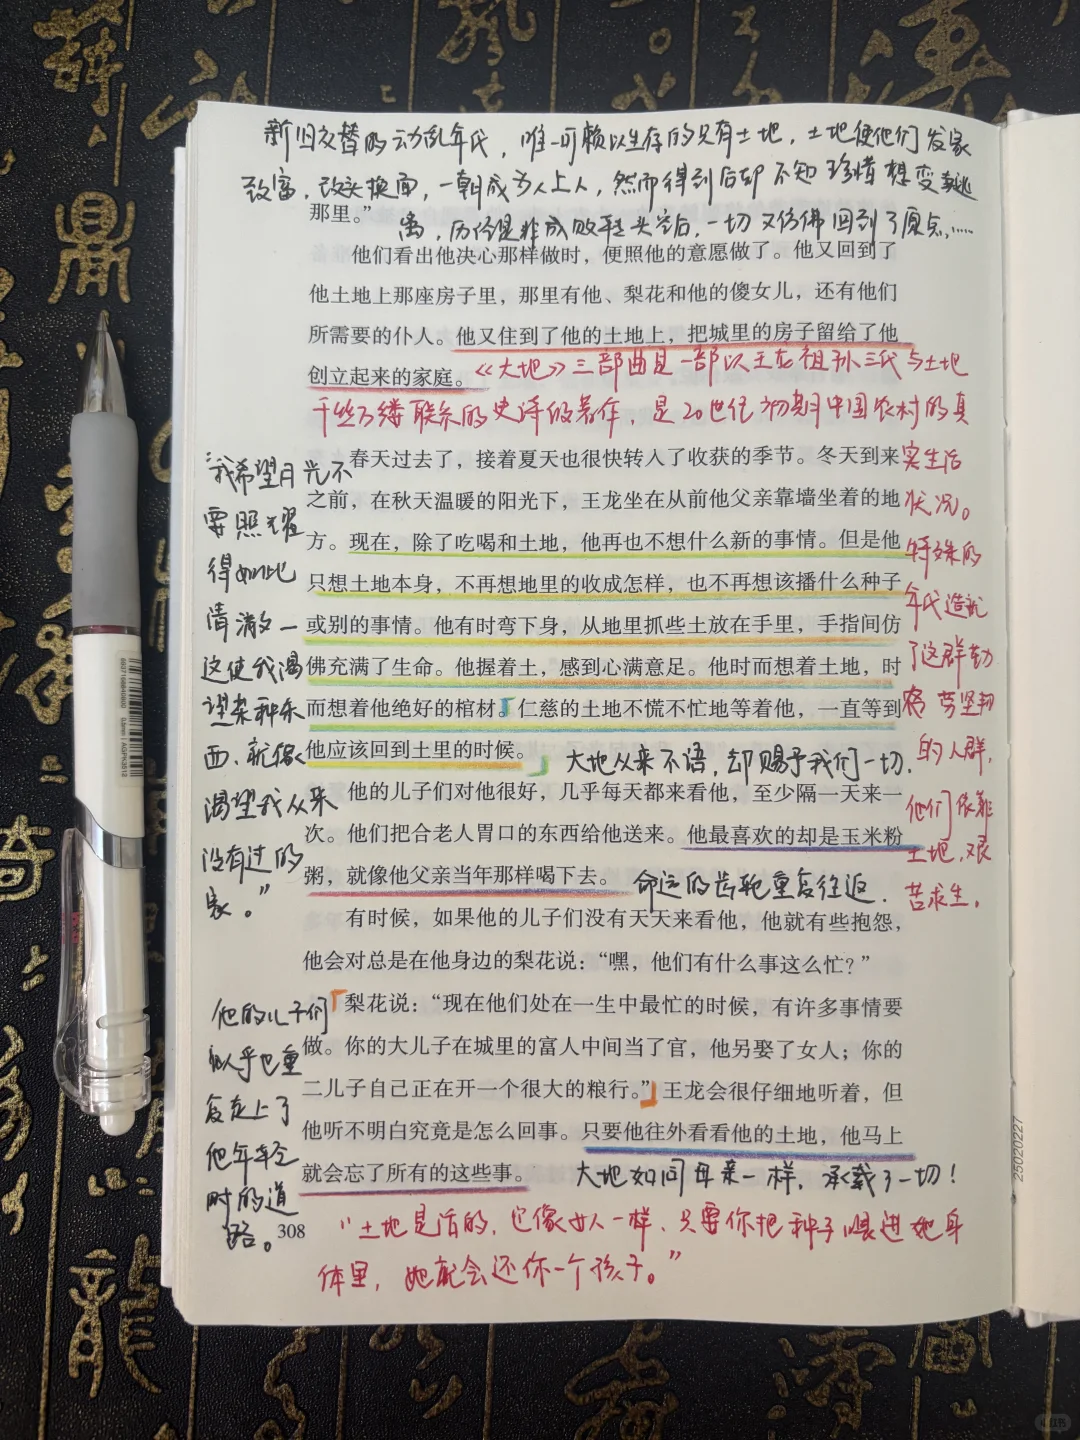 新旧交替的动乱年代，唯一可赖以生存的只有土地，土地使他们发家
致富，改头换面，一朝成为人上人，然而得到后却不知珍惜想变卖逃
离，历经是非成败转头空后，一切又仿佛回到了原点……
那里。”
他们看出他决心那样做时，便照他的意愿做了。他又回到了
他土地上那座房子里，那里有他、梨花和他的傻女儿，还有他们
所需要的仆人。他又住到了他的土地上，把城里的房子留给了他
创立起来的家庭。
《大地》三部曲是一部以王龙祖孙三代与土地
千丝万缕联系的史诗级著作，是20世纪初期中国农村的真
实生活
状况。
特殊的
年代造就
了这群勤
劳坚韧
的人群，
他们依靠
土地，艰
苦求生。
“我希望月光不
要照耀
得如此
清澈—
这使我渴
望某种东
西、就像
渴望我从来
没有过的
家。”
春天过去了，接着夏天也很快转入了收获的季节。冬天到来
之前，在秋天温暖的阳光下，王龙坐在从前他父亲靠墙坐着的地
方。现在，除了吃喝和土地，他再也不想什么新的事情。但是他
只想土地本身，不再想地里的收成怎样，也不再想该播什么种子
或别的事情。他有时弯下身，从地里抓些土放在手里，手指间仿
佛充满了生命。他握着土，感到心满意足。他时而想着土地，时
而想着他绝好的棺材。仁慈的土地不慌不忙地等着他，一直等到
他应该回到土里的时候。
大地从来不语，却赐予我们一切．
他的儿子们对他很好，几乎每天都来看他，至少隔一天来一
次。他们把合老人胃口的东西给他送来。他最喜欢的却是玉米粉
粥，就像他父亲当年那样喝下去。
命运的齿轮重复往返．
有时候，如果他的儿子们没有天天来看他，他就有些抱怨，
他会对总是在他身边的梨花说：“嘿，他们有什么事这么忙？”
梨花说：“现在他们处在一生中最忙的时候，有许多事情要
做。你的大儿子在城里的富人中间当了官，他另娶了女人；你的
二儿子自己正在开一个很大的粮行。”王龙会很仔细地听着，但
他听不明白究竟是怎么回事。只要他往外看看他的土地，他马上
就会忘了所有的这些事。
大地如同母亲一样，承载了一切！
他的儿子们
似乎也重
复走上了
他年轻
时的道
路。
308
“土地是活的，它像女人一样，只要你把种子喂进她身
体里，她就会还你一个孩子。”
25020227